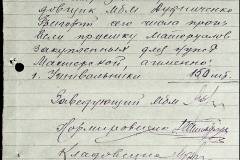 довщик МБМ
сего числа произ
вели приемку материалов
закупленных для нужд
Мастерской, а именно:
1. Умывальники 150 шт.
Заведующий МБМ
Нормировщик
Кладовщик